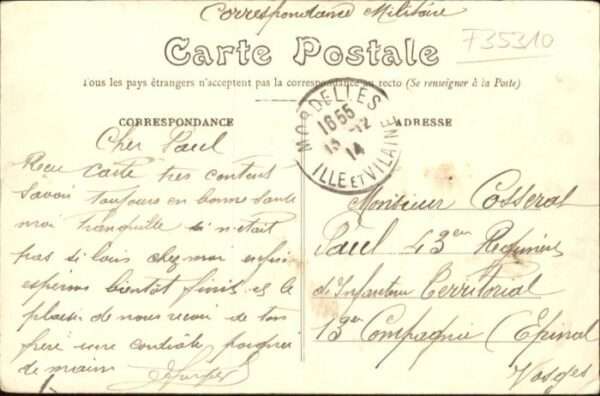 Correspondance Militaire
F35310
Carte Postale
Tous les pays étrangers n'acceptent pas la correspondance au recto (Se renseigner à la Poste)
CORRESPONDANCE
ADRESSE
MORDELLES
16 55
13 - 12
14
ILLE ET VILAINE
Cher Paul
Reçu carte tres content
savoir toujours en bonne sante
moi tranquille si n'etait
pas si loin chez moi enfin
esperons bientot finis et le
plaisir de nous revoir de ton
frère une cordiale poignee
de main
Monsieur Cosserat
Paul 43eme Regiment
d'Infanterie Territorial
13eme Compagnie Epinal
Vosges